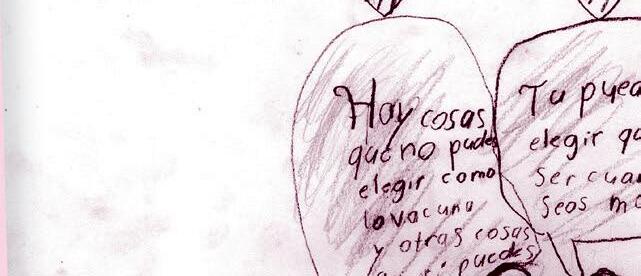 Hay cosas
que no puedes
elegir como
la vacuna
y otras cosas
puedes
Tu pued
elegir qu
ser cuan
seas ma